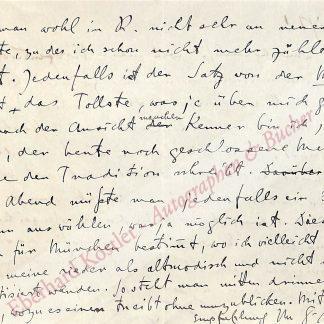 man wohl in D. nicht sehr an neuen
te, zu der ich schon nicht mehr zähle
t. Jedenfalls ist der Satz von der
+ das Tollste, was je über mich
nach der Ansicht mancher Kenner bin ich
, der heute noch geschlossene Me
e der Tradition schreibt.
Abend müßte man jedenfalls ein
en auswählen, was ja möglich ist. Die
n für München bestimmt, wo ich vielleicht
meine Lieder als altmodisch und nicht
tisiert werden. So steht man mitten drinnen
wozu es einen treibt ohne umzublicken. Mit
Empfehlung Ihr
Eberhard Köstler Autographen & Bücher